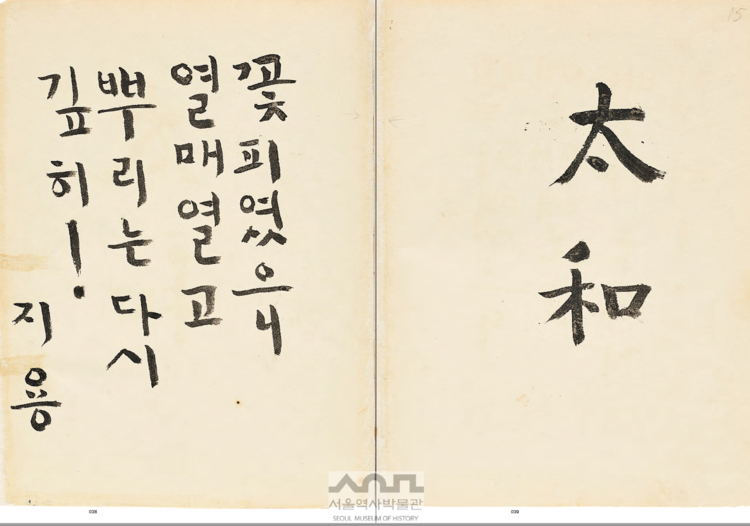 太和
꽃피였으니
열매열고
뿌리는다시
깊히!
지용
15
서울역사박물관
SEOUL MUSEUM OF HISTORY
038
039